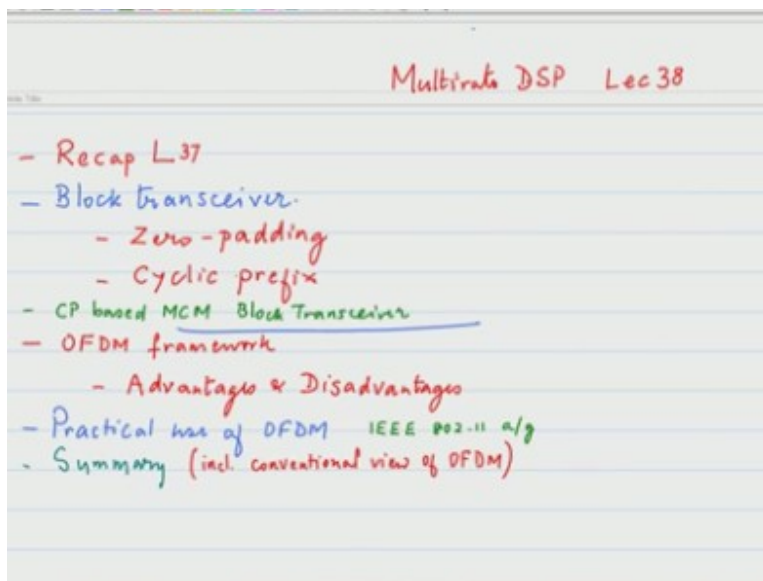 Multirate DSP Lec 38
- Recap L37
- Block transceiver.
- Zero-padding
- Cyclic prefix
- CP based MCM Block Transceiver
- OFDM framework
- Advantages & Disadvantages
- Practical use of OFDM IEEE 802.11 a/g
- Summary (incl. conventional view of OFDM)